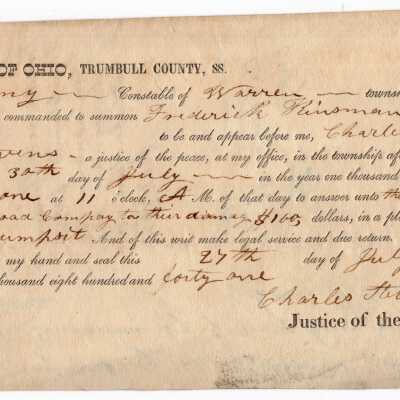 OF OHIO, TRUMBULL COUNTY, SS.
ny — Constable of Warren — townsh
commanded to summon Frederick Kinsman
to be and appear before me, Charle
vens - a justice of the peace, at my office, in the township af
30th day of July — in the year one thousand
one at 11 o'clock, A M. of that day to answer unto the
oad Company to their damage $100 dollars, in a pl
umpsit And of this writ make legal service and due return.
my hand and seal this 27th day of July
thousand eight hundred and forty one
Charles Ste
Justice of the